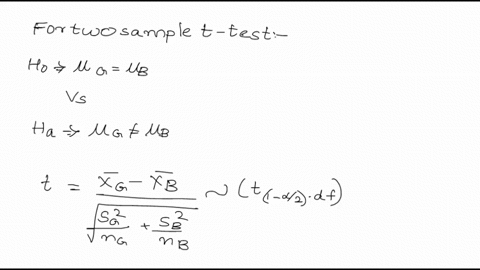 For two sample t-test:-
H₀ → μ_G = μ_B
Vs
Hₐ → μ_G ≠ μ_B
t = (X̄_G - X̄_B) / √(S_G²/n_G + S_B²/n_B) ~ (t_(1-α/2)·df)